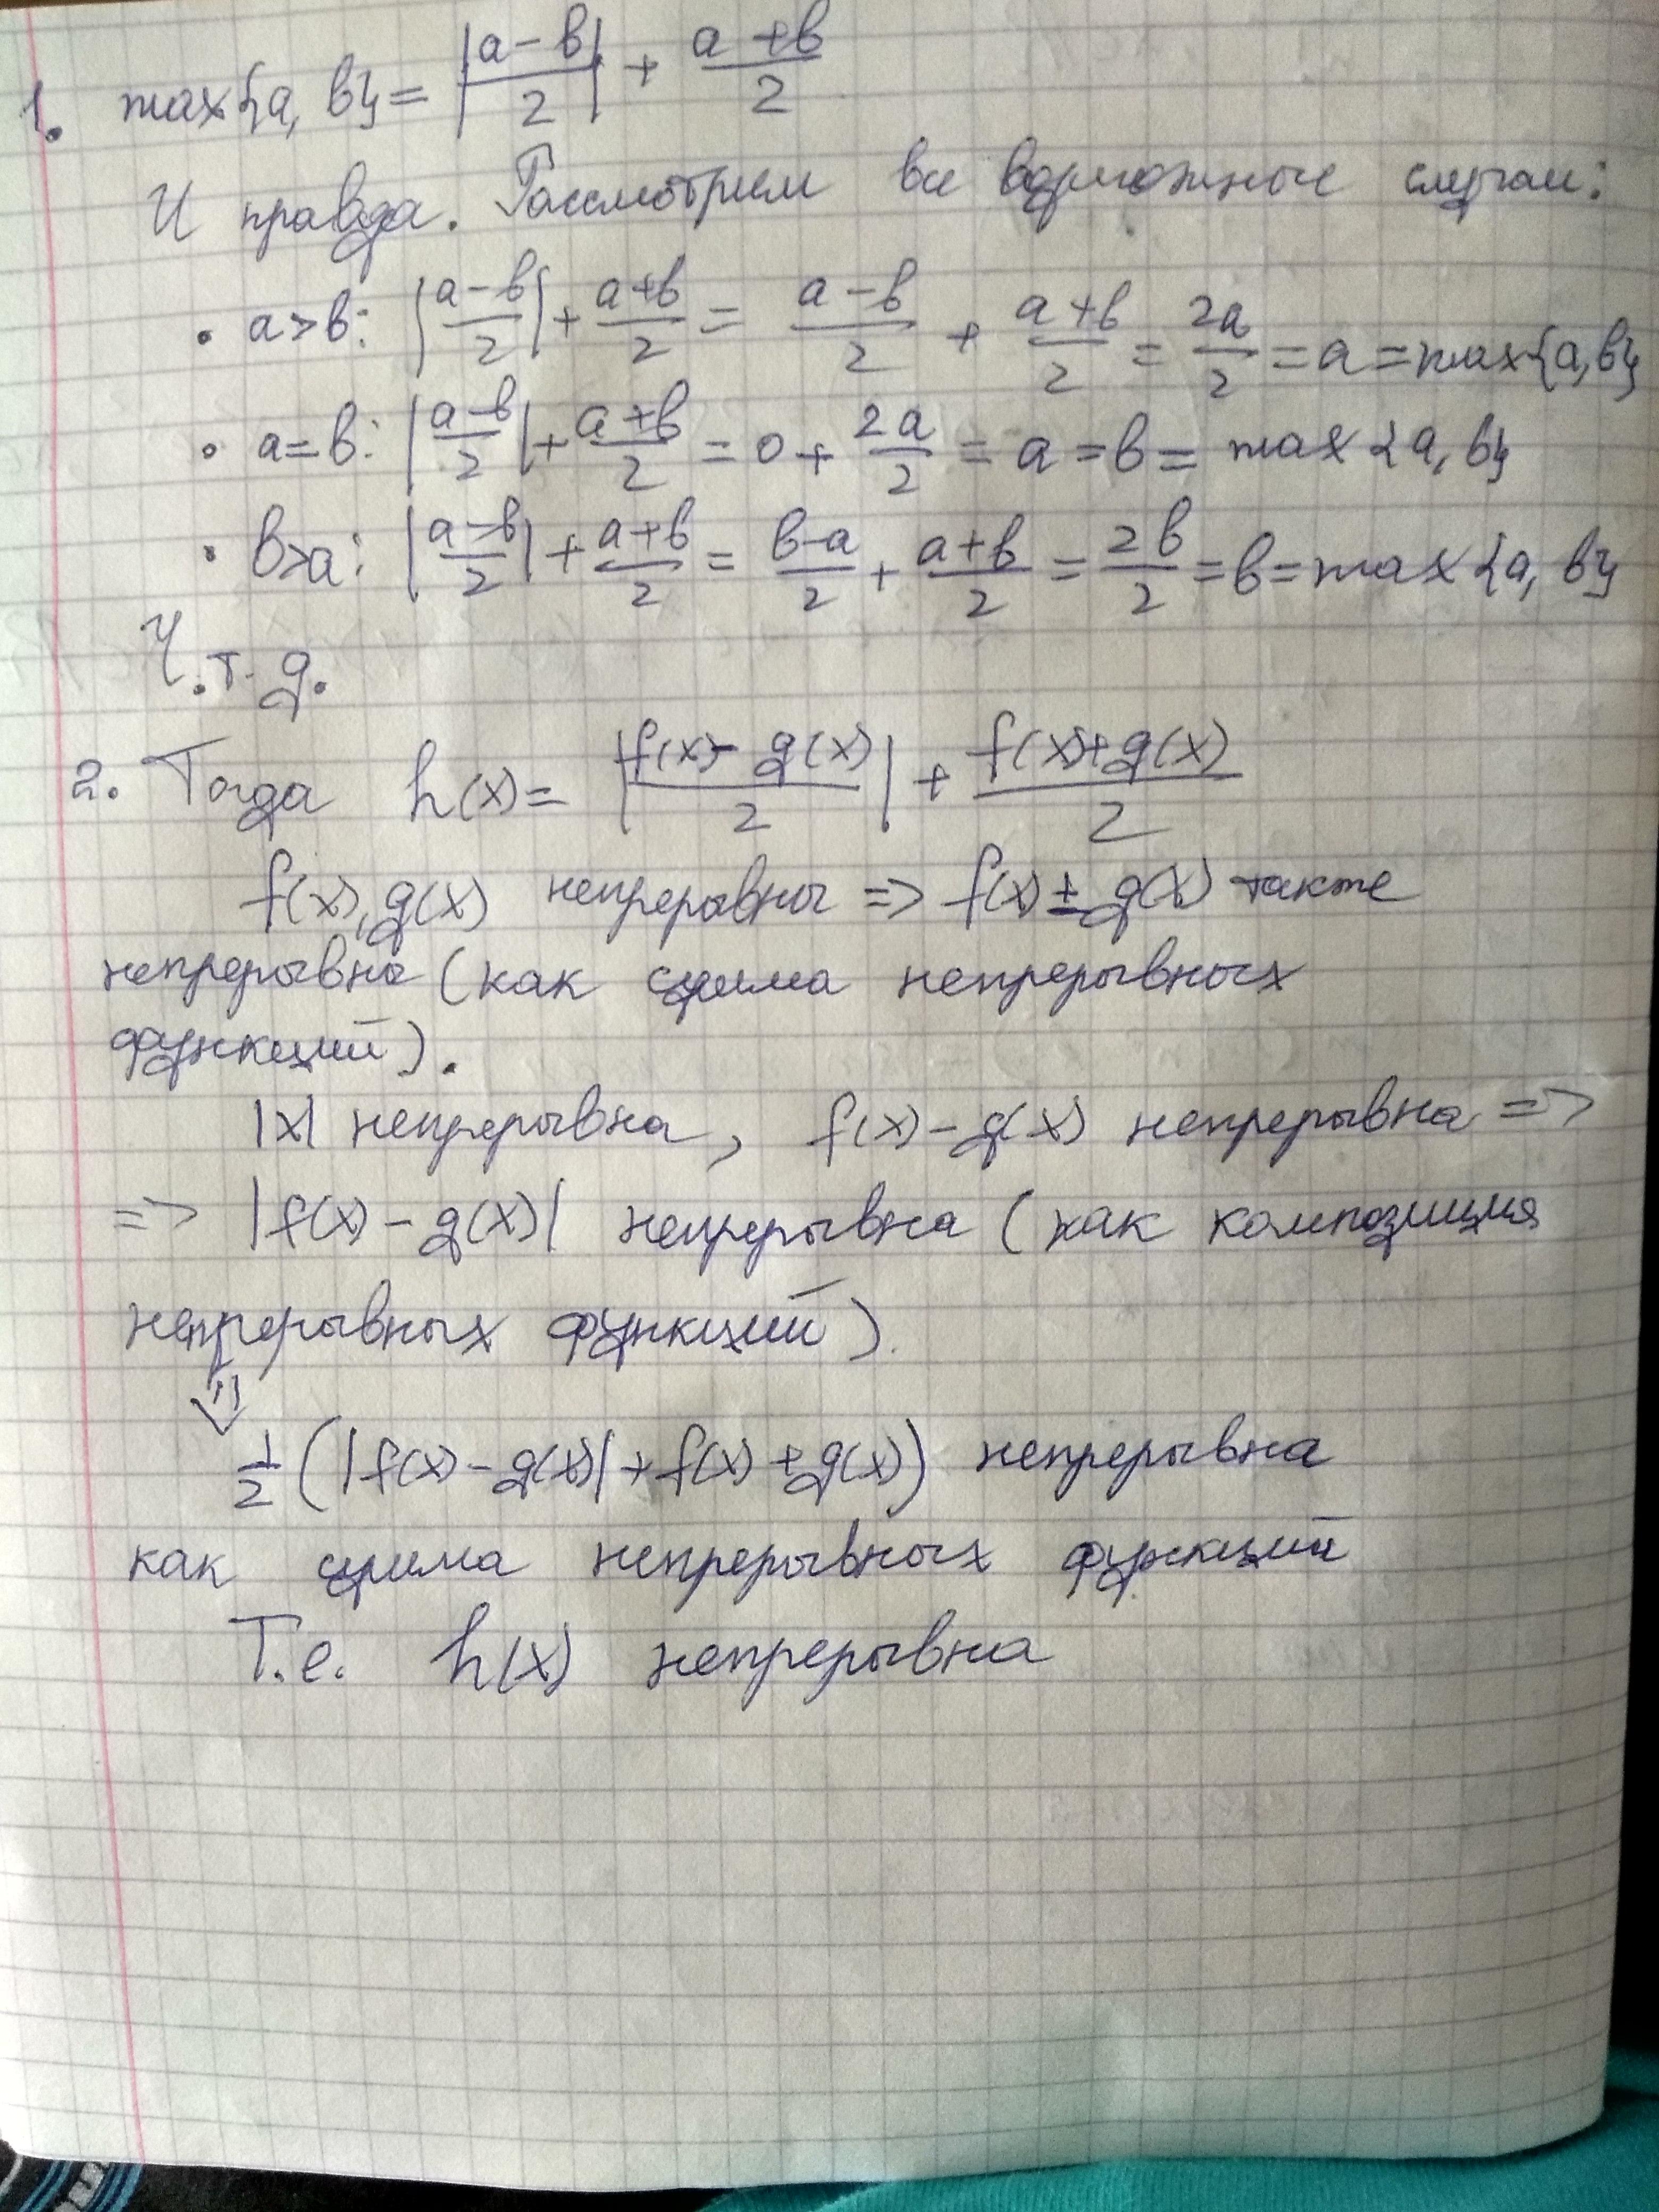 1. max{a, b} = |(a-b)/2| + (a+b)/2
И правда. Рассмотрим все возможные случаи:
• a>b: |(a-b)/2| + (a+b)/2 = (a-b)/2 + (a+b)/2 = 2a/2 = a = max{a, b}
• a=b: |(a-b)/2| + (a+b)/2 = 0 + 2a/2 = a = b = max{a, b}
• b>a: |(a-b)/2| + (a+b)/2 = (b-a)/2 + (a+b)/2 = 2b/2 = b = max{a, b}
Ч.т.д.
2. Тогда h(x) = |(f(x) - g(x))/2| + (f(x)+g(x))/2
f(x), g(x) непрерывны => f(x) ± g(x) также
непрерывна (как сумма непрерывных
функций).
|x| непрерывна, f(x) - g(x) непрерывна =>
=> |f(x) - g(x)| непрерывна (как композиция
непрерывных функций).
⇓
1/2 (|f(x) - g(x)| + f(x) + g(x)) непрерывна
как сумма непрерывных функций
Т.е. h(x) непрерывна